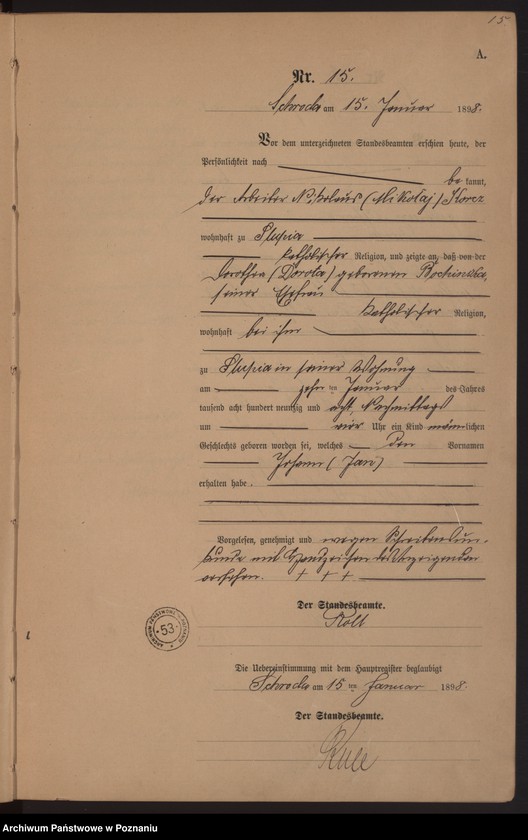 15.
A.
Nr. 15.
Schroda am 15. Januar 1898.
Vor dem unterzeichneten Standesbeamten erschien heute, der
Persönlichkeit nach
be kannt,
der Arbeiter Nikolaus (Mikołaj) Korcz
wohnhaft zu Slupia
katholischer Religion, und zeigte an, daß von der
Dorothea (Dorota) geborenen
seiner Ehefrau
katholischer Religion,
wohnhaft bei ihm
zu Slupia in seiner Wohnung
am zehn ten Januar des Jahres
tausend acht hundert neunzig und acht, Nachmittags
um vier Uhr ein Kind männlichen
Geschlechts geboren worden sei, welches den Vornamen
Johann (Jan)
erhalten habe.
Vorgelesen, genehmigt und wegen Schreibensun-
kunde mit Handzeichen des Anzeigenden
versehen. + + +
Der Standesbeamte.
Die Uebereinstimmung mit dem Hauptregister beglaubigt
Schroda am 15 ten Januar 1898.
Der Standesbeamte.
53
Archiwum Państwowe w Poznaniu